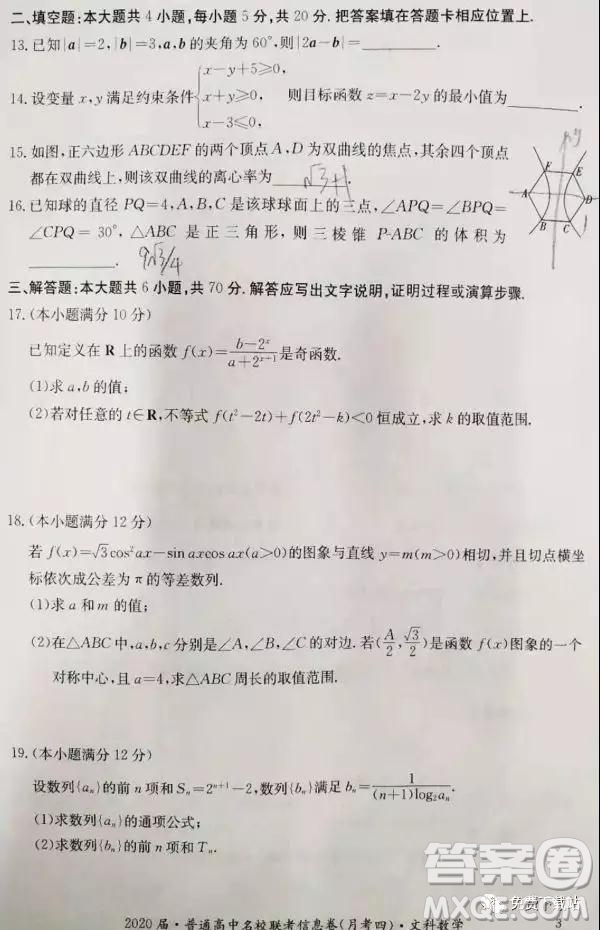 二、填空题:本大题共4小题,每小题5分,共20分.把答案填在答题卡相应位置上.
13.已知|a|=2,|b|=3,a,b的夹角为60°,则|2a-b|=________.
14.设变量x,y满足约束条件{x-y+5≥0, x+y≥0, x-3≤0, 则目标函数z=x-2y的最小值为________.
15.如图,正六边形ABCDEF的两个顶点A,D为双曲线的焦点,其余四个顶点
都在双曲线上,则该双曲线的离心率为 √3+1.
y
F E
A D
B C
16.已知球的直径PQ=4,A,B,C是该球球面上的三点,∠APQ=∠BPQ=
∠CPQ=30°,△ABC是正三角形,则三棱锥P-ABC的体积为
________. 9√3/4
三、解答题:本大题共6小题,共70分.解答应写出文字说明,证明过程或演算步骤.
17.(本小题满分10分)
已知定义在R上的函数f(x)=(b-2^x)/(a+2^(x+1))是奇函数.
(1)求a,b的值;
(2)若对任意的t∈R,不等式f(t²-2t)+f(2t²-k)<0恒成立,求k的取值范围.
18.(本小题满分12分)
若f(x)=√3cos²ax-sin axcos ax(a>0)的图象与直线y=m(m>0)相切,并且切点横坐
标依次成公差为π的等差数列.
(1)求a和m的值;
(2)在△ABC中,a,b,c分别是∠A,∠B,∠C的对边.若(A/2,√3/2)是函数f(x)图象的一个
对称中心,且a=4,求△ABC周长的取值范围.
19.(本小题满分12分)
设数列{aₙ}的前n项和Sₙ=2^(n+1)-2,数列{bₙ}满足bₙ=1/((n+1)log₂aₙ).
(1)求数列{aₙ}的通项公式;
(2)求数列{bₙ}的前n项和Tₙ.
答案卷
免费下载站
2020届·普通高中名校联考信息卷(月考四)·文科数学 3